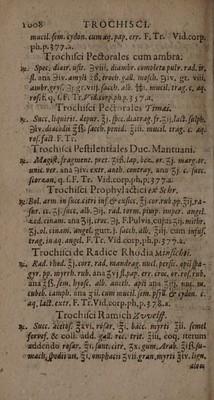 1008 TROCHISCI.
mucil. sem. cydon. cum aq. pap. err. F. Tr. Vid. corp.
ph. p. 377. a.
Trochisci Pectorales cum ambra.
Spec. diair. ust. ʒviii. diambr. completa pulv. rad. ir.
troch. gall. mosch. ʒiv. gr. viii.
ambr. grys. sacch. alb. mucil. trag. c. aq.
ros. f. q. f. F. Tr. Vid. corp. ph. p. 357. a.
Trochisci Pectorales Timaei.
Succ. liquirit. depur. ʒi. spec. diatrag. fr. ʒij. lact. sulph.
ʒiv. diacodii ʒß. sacch. penid. ʒiii. mucil. trag. c. aq.
ros. fact. F. Tr.
Trochisci Pestilentiales Duc. Mantuani.
Magist. fragment. pret. lap. bez. or. ʒj. margar.
unic. ver. ana ʒiv. extr. anth. contray. ana ʒj. c. succ.
scorzon. q. f. F. Tr. Vid. corp. ph. p. 377. a.
Trochisci Prophylactici Schr.
Bol. arm. in succ. citri inf. & exsicc. ʒj. cor. rub. pp. ʒij. ra-
sur. c. c. ʒj. succ. alb. ʒij. rad. torm. pimp. imper. angel.
zed. cinam. ana ʒij. croc. ʒj. F. Pulvis, cui mithr.
ʒj. ol. cinam. angel. gutt. j. sacch. alb. ʒiij. cum infus.
trag. in aq. angel. F. Tr. Vid. corp. ph. p. 377. a.
Trochisci de Radice Rhodia Minsichti.
Rad. rhod. ʒj. cort. rad. mandrag. nucl. persic. opii the-
gyr. pp. myrrh. rub. ana ʒvj. fl. pap. err. croc. or. ros. rub.
ana ʒß. sem. hyosc. alb. aneth. apii ana ʒiij. nuc. m.
cubeb. camph. ana ʒii. cum mucil. sem. psyll. & cydon. c.
aq. lact. extr. F. Tr. Vid. corp. ph. p. 378. a.
Trochisci Ramich Zvvelff.
Succ. acetos. ʒxvi, rosar. ʒi, bacc. myrti ʒii. semel
fervef, & coll. add. gall. rec. trit. ʒiii, coq. iterum
addendo rosar. ʒi. sant. citr. ʒx. gum. Arab. ʒiß. su-
mach, spodii an. ʒi, omphacis ʒvii. gran. myrti ʒiv. lign.
aloes